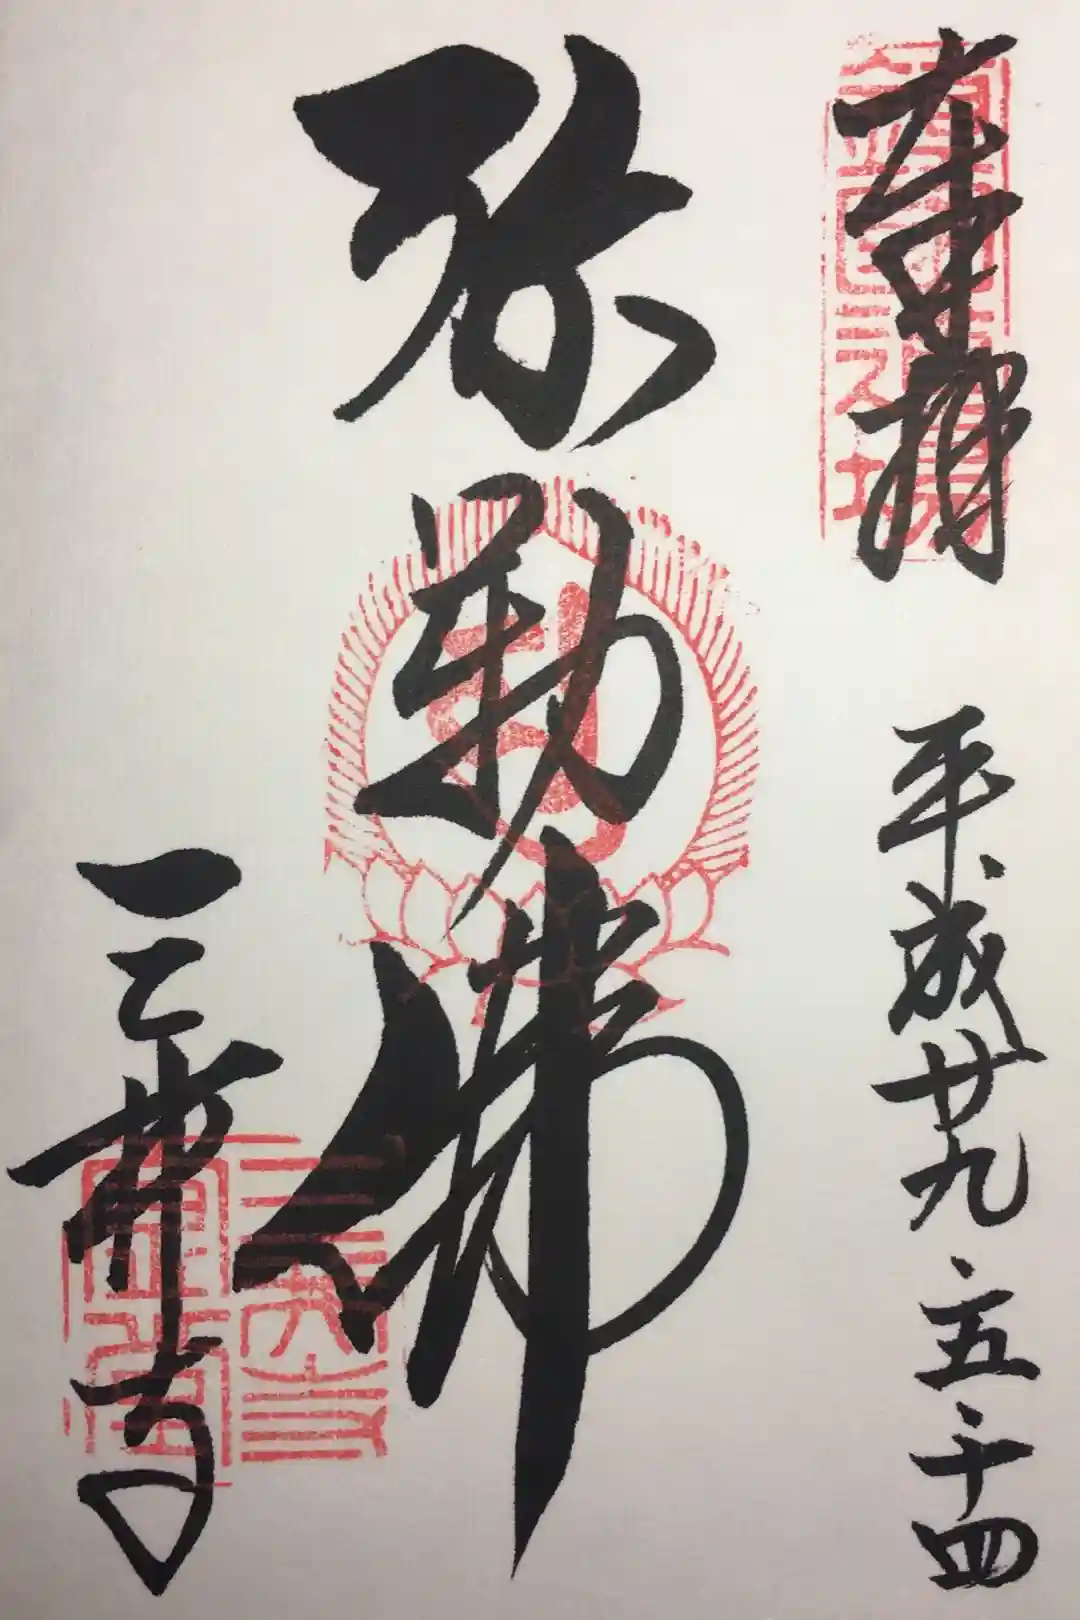 奉拝 平成廿九、五、十四
弥勒佛
三井寺